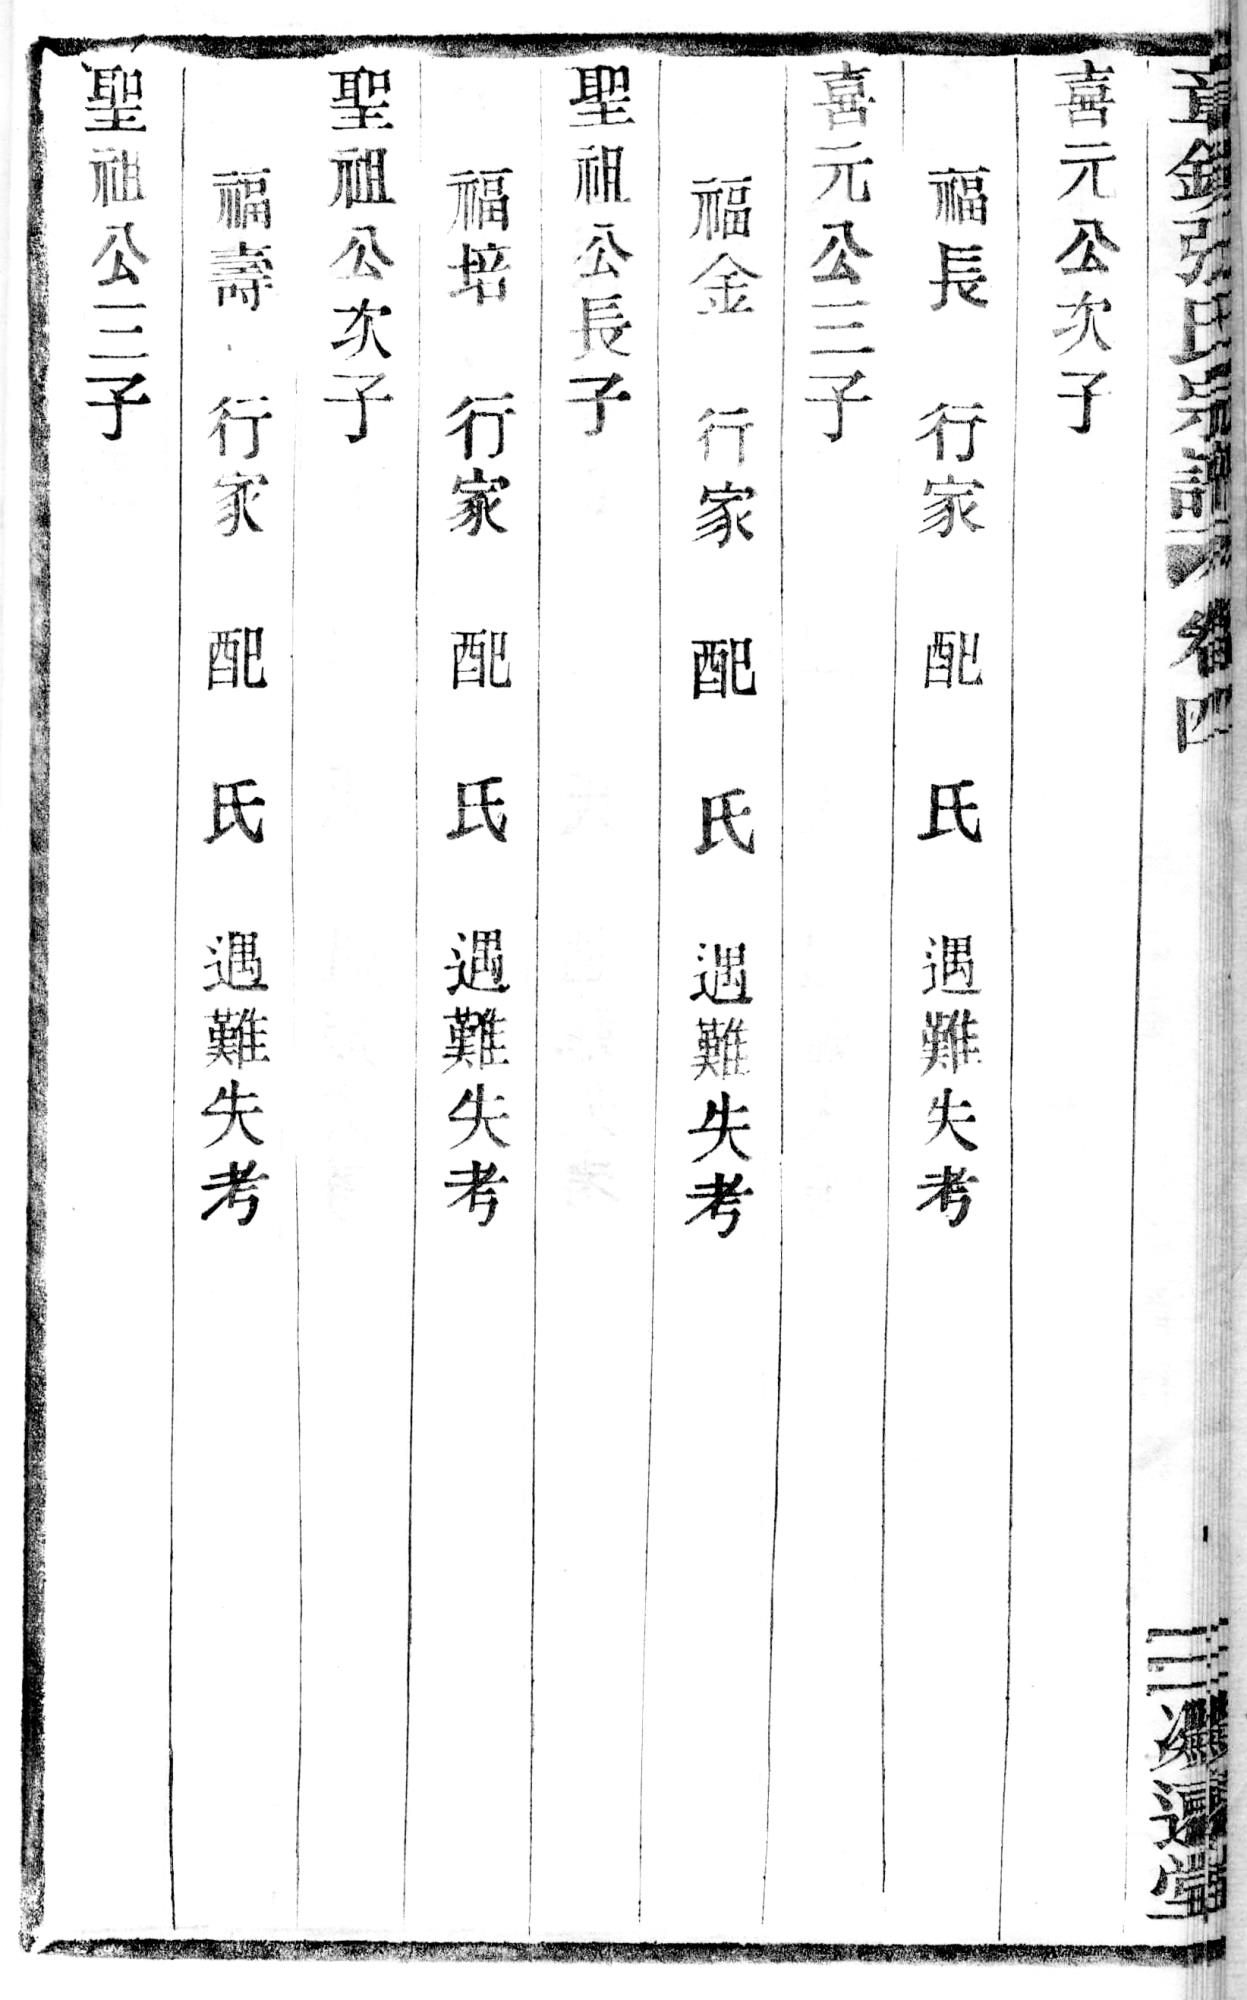 張氏宗譜 卷四
喜元公次子
福長 行家 配 氏 遇難失考
喜元公三子
福金 行家 配 氏 遇難失考
聖祖公長子
福培 行家 配 氏 遇難失考
聖祖公次子
福壽 行家 配 氏 遇難失考
聖祖公三子